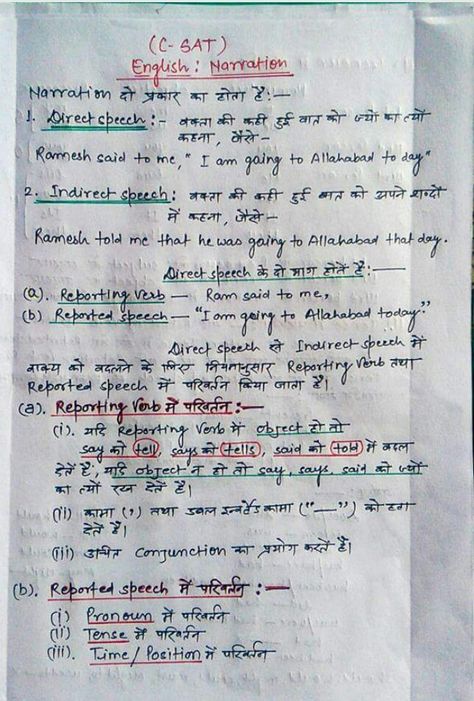 (C-SAT)
English : Narration
Narration दो प्रकार का होता है :—
1. Direct speech :- वक्ता की कही हुई बात को ज्यों का त्यों
कहना, जैसे—
Ramesh said to me, "I am going to Allahabad to day"
2. Indirect speech : वक्ता की कही हुई बात को अपने शब्दों
में कहना, जैसे—
Ramesh told me that he was going to Allahabad that day.
Direct speech के दो भाग होते हैं :—
(a). Reporting Verb — Ram said to me,
(b) Reported speech — "I am going to Allahabad today."
Direct speech से Indirect speech में
वाक्य को बदलने के लिए नियमानुसार Reporting Verb तथा
Reported speech में परिवर्तन किया जाता है।
(a). Reporting Verb में परिवर्तन :—
(i). यदि Reporting Verb में object हो तो
say को tell, says को tells, said को told में बदल
देते हैं, यदि object न हो तो say, says, said को ज्यों
का त्यों रख देते हैं।
(ii) कामा (,) तथा डबल इन्वर्टेड कामा ("—") को हटा
देते हैं।
(iii) उचित Conjunction का प्रयोग करते हैं।
(b). Reported speech में परिवर्तन :—
(i) Pronoun में परिवर्तन
(ii) Tense में परिवर्तन
(iii). Time/Position में परिवर्तन